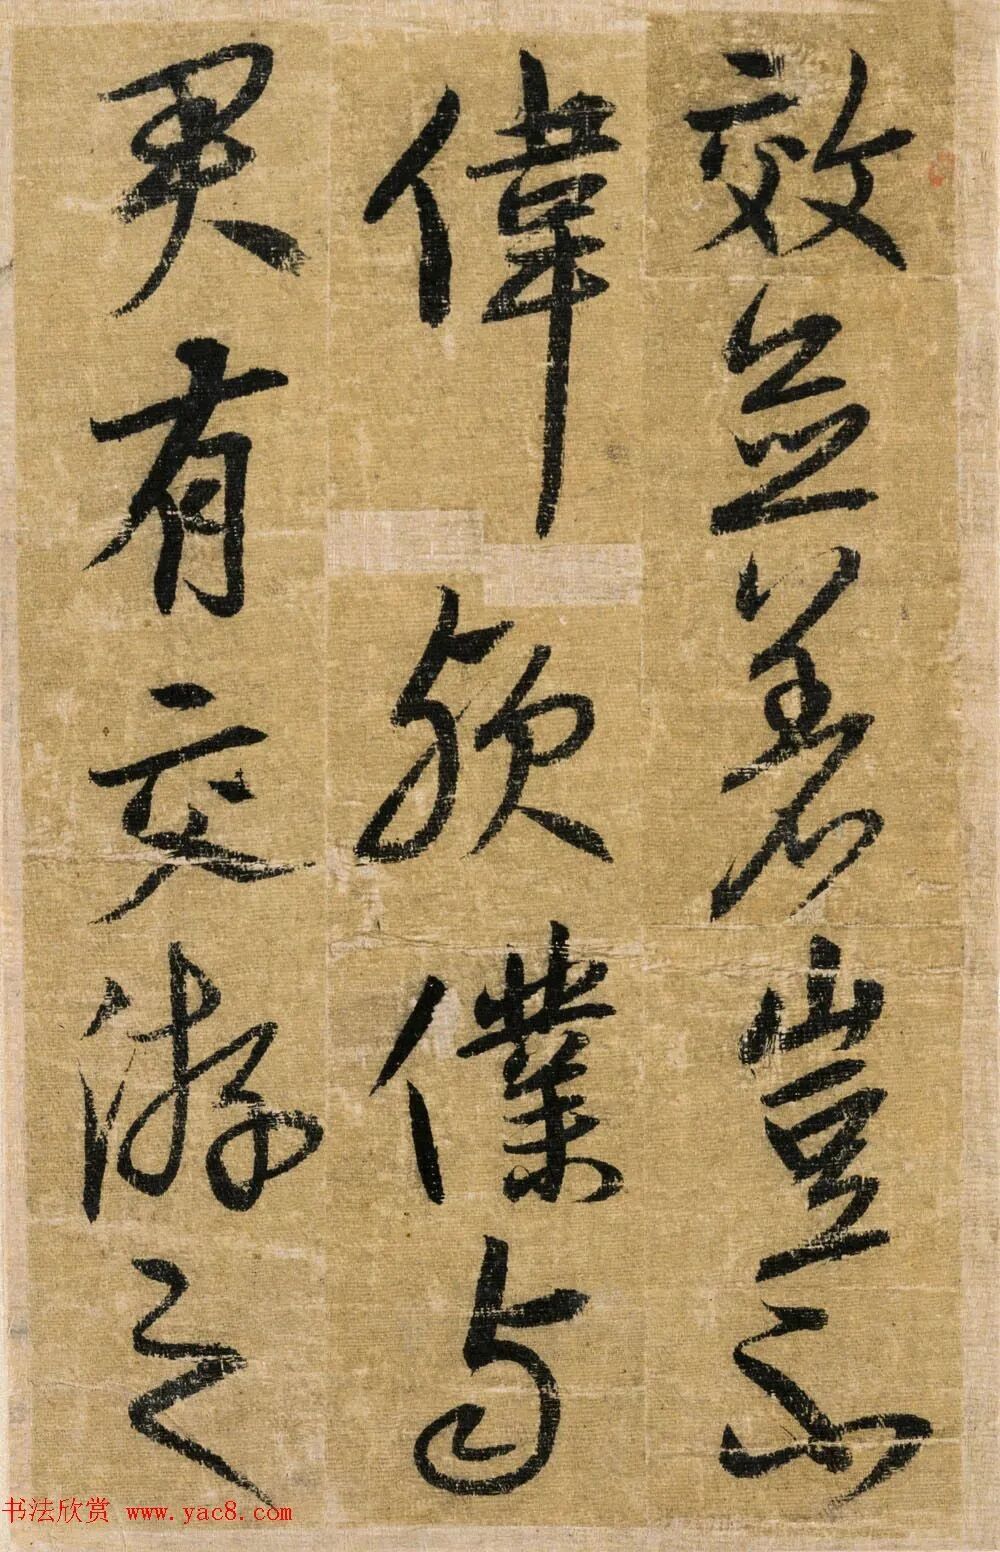 效並著豈不
偉歟僕與
有交游之
书法欣赏 www.yac8.com